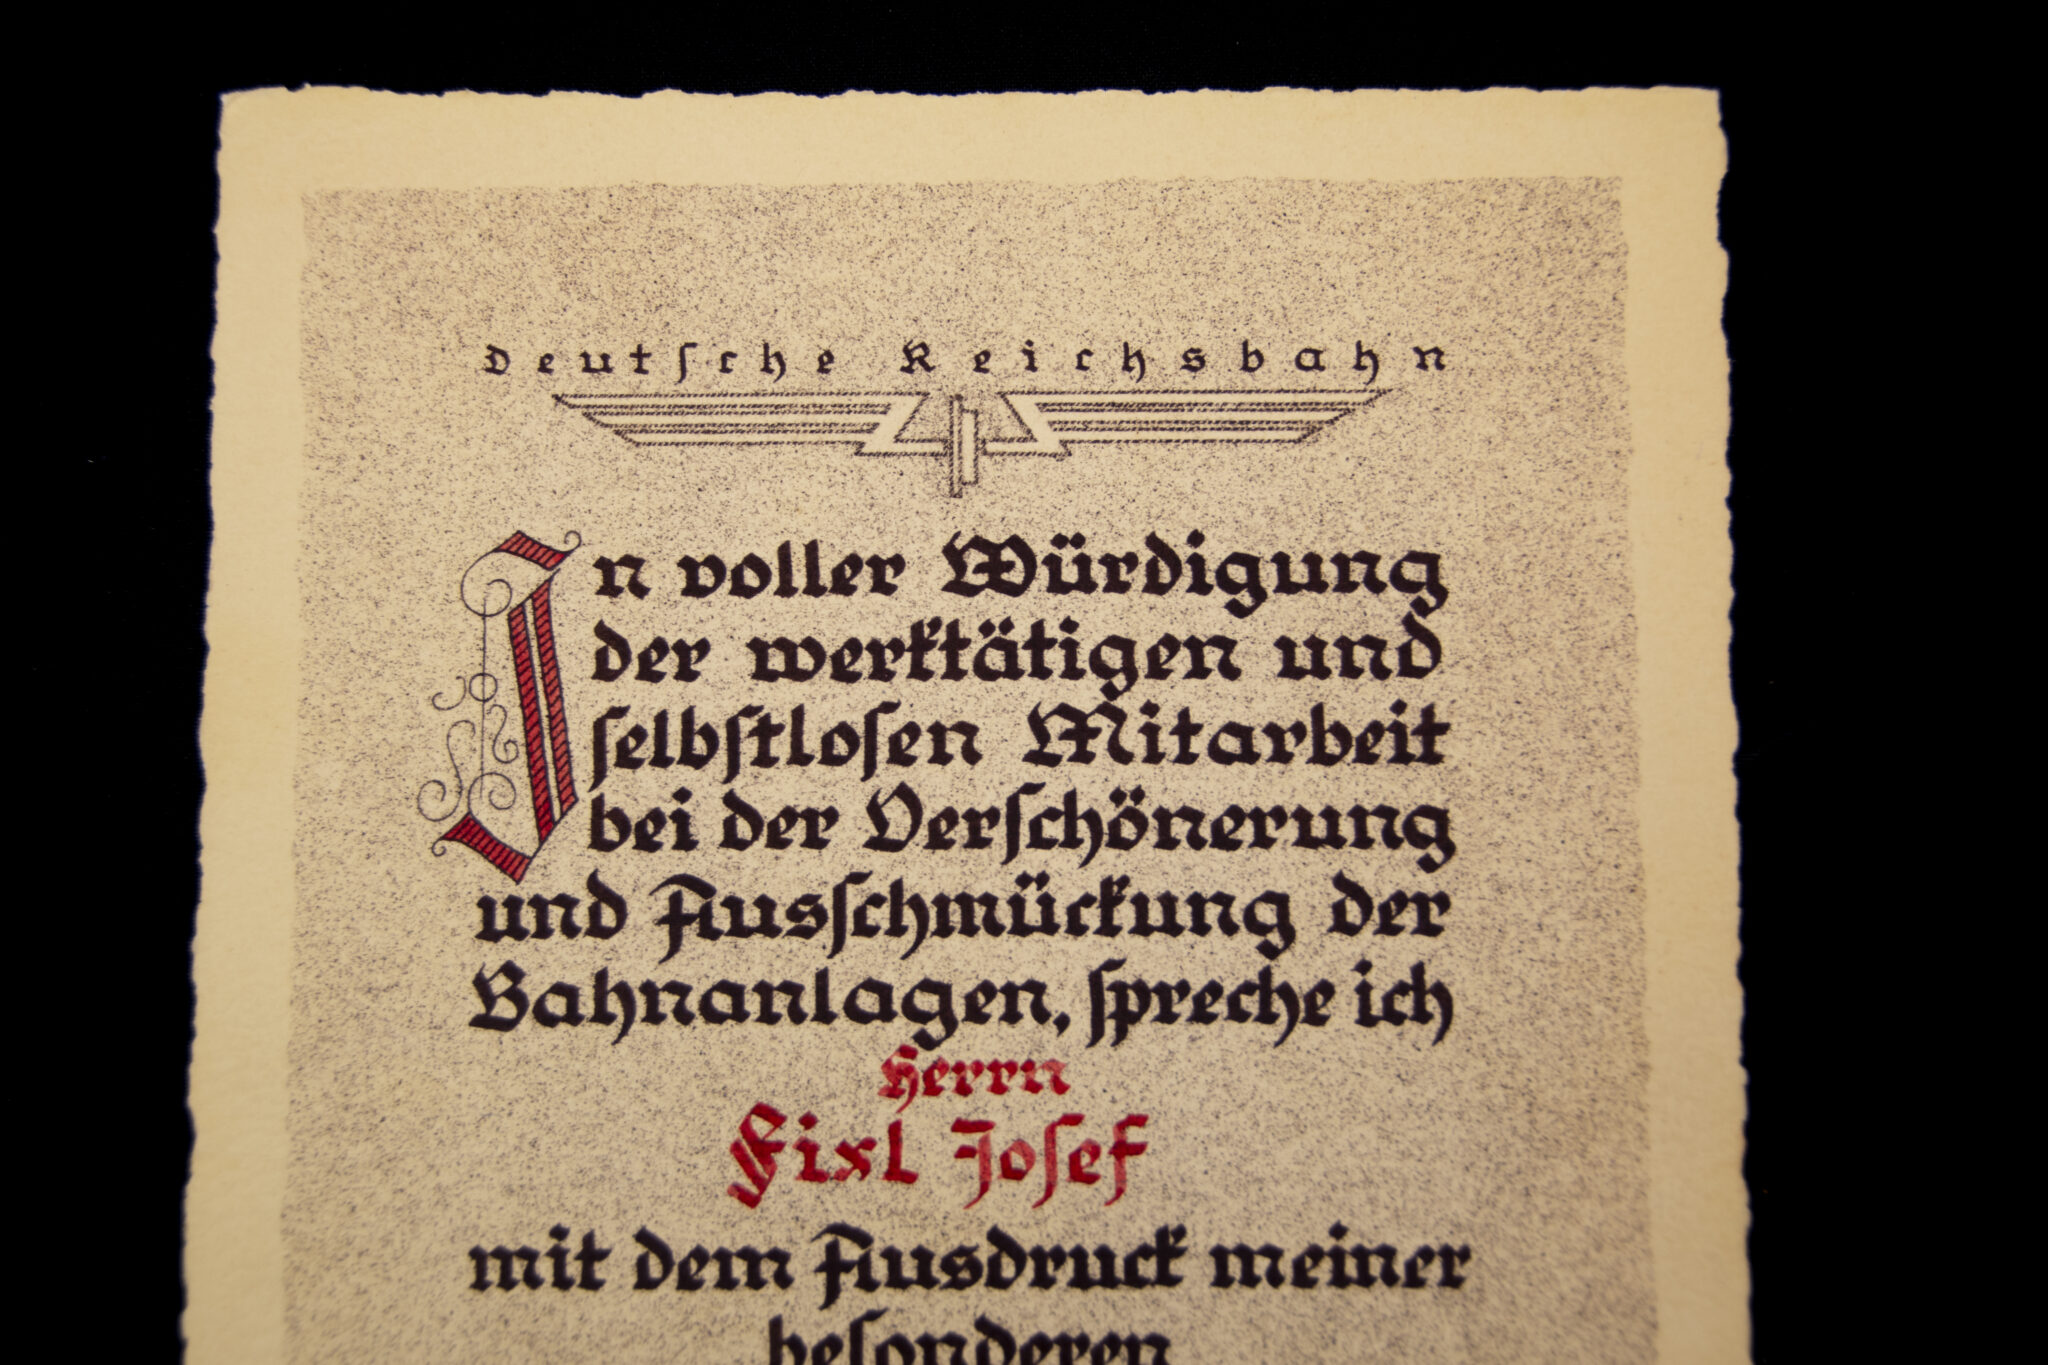 Deutſche Reichsbahn
In voller Würdigung
der werktätigen und
ſelbſtloſen Mitarbeit
bei der Verſchönerung
und Ausſchmückung der
Bahnanlagen, ſpreche ich
Herrn
Fixl Joſef
mit dem Ausdruck meiner
beſonderen